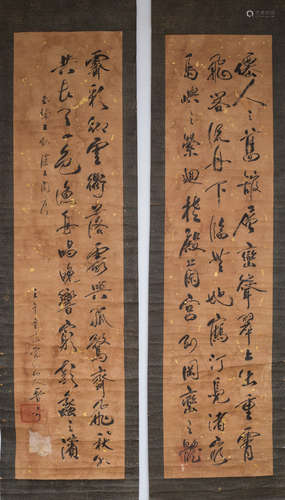 僊人之舊館層巒聳翠上出重霄
飛閣流丹下臨無地鶴汀鳧渚窮
島嶼之縈迴桂殿蘭宮列岡巒之體
霽彩徹雲衢落霞與孤鶩齊飛秋水
共長天一色漁舟唱晚響窮彭蠡之濱
王勃滕王閣序